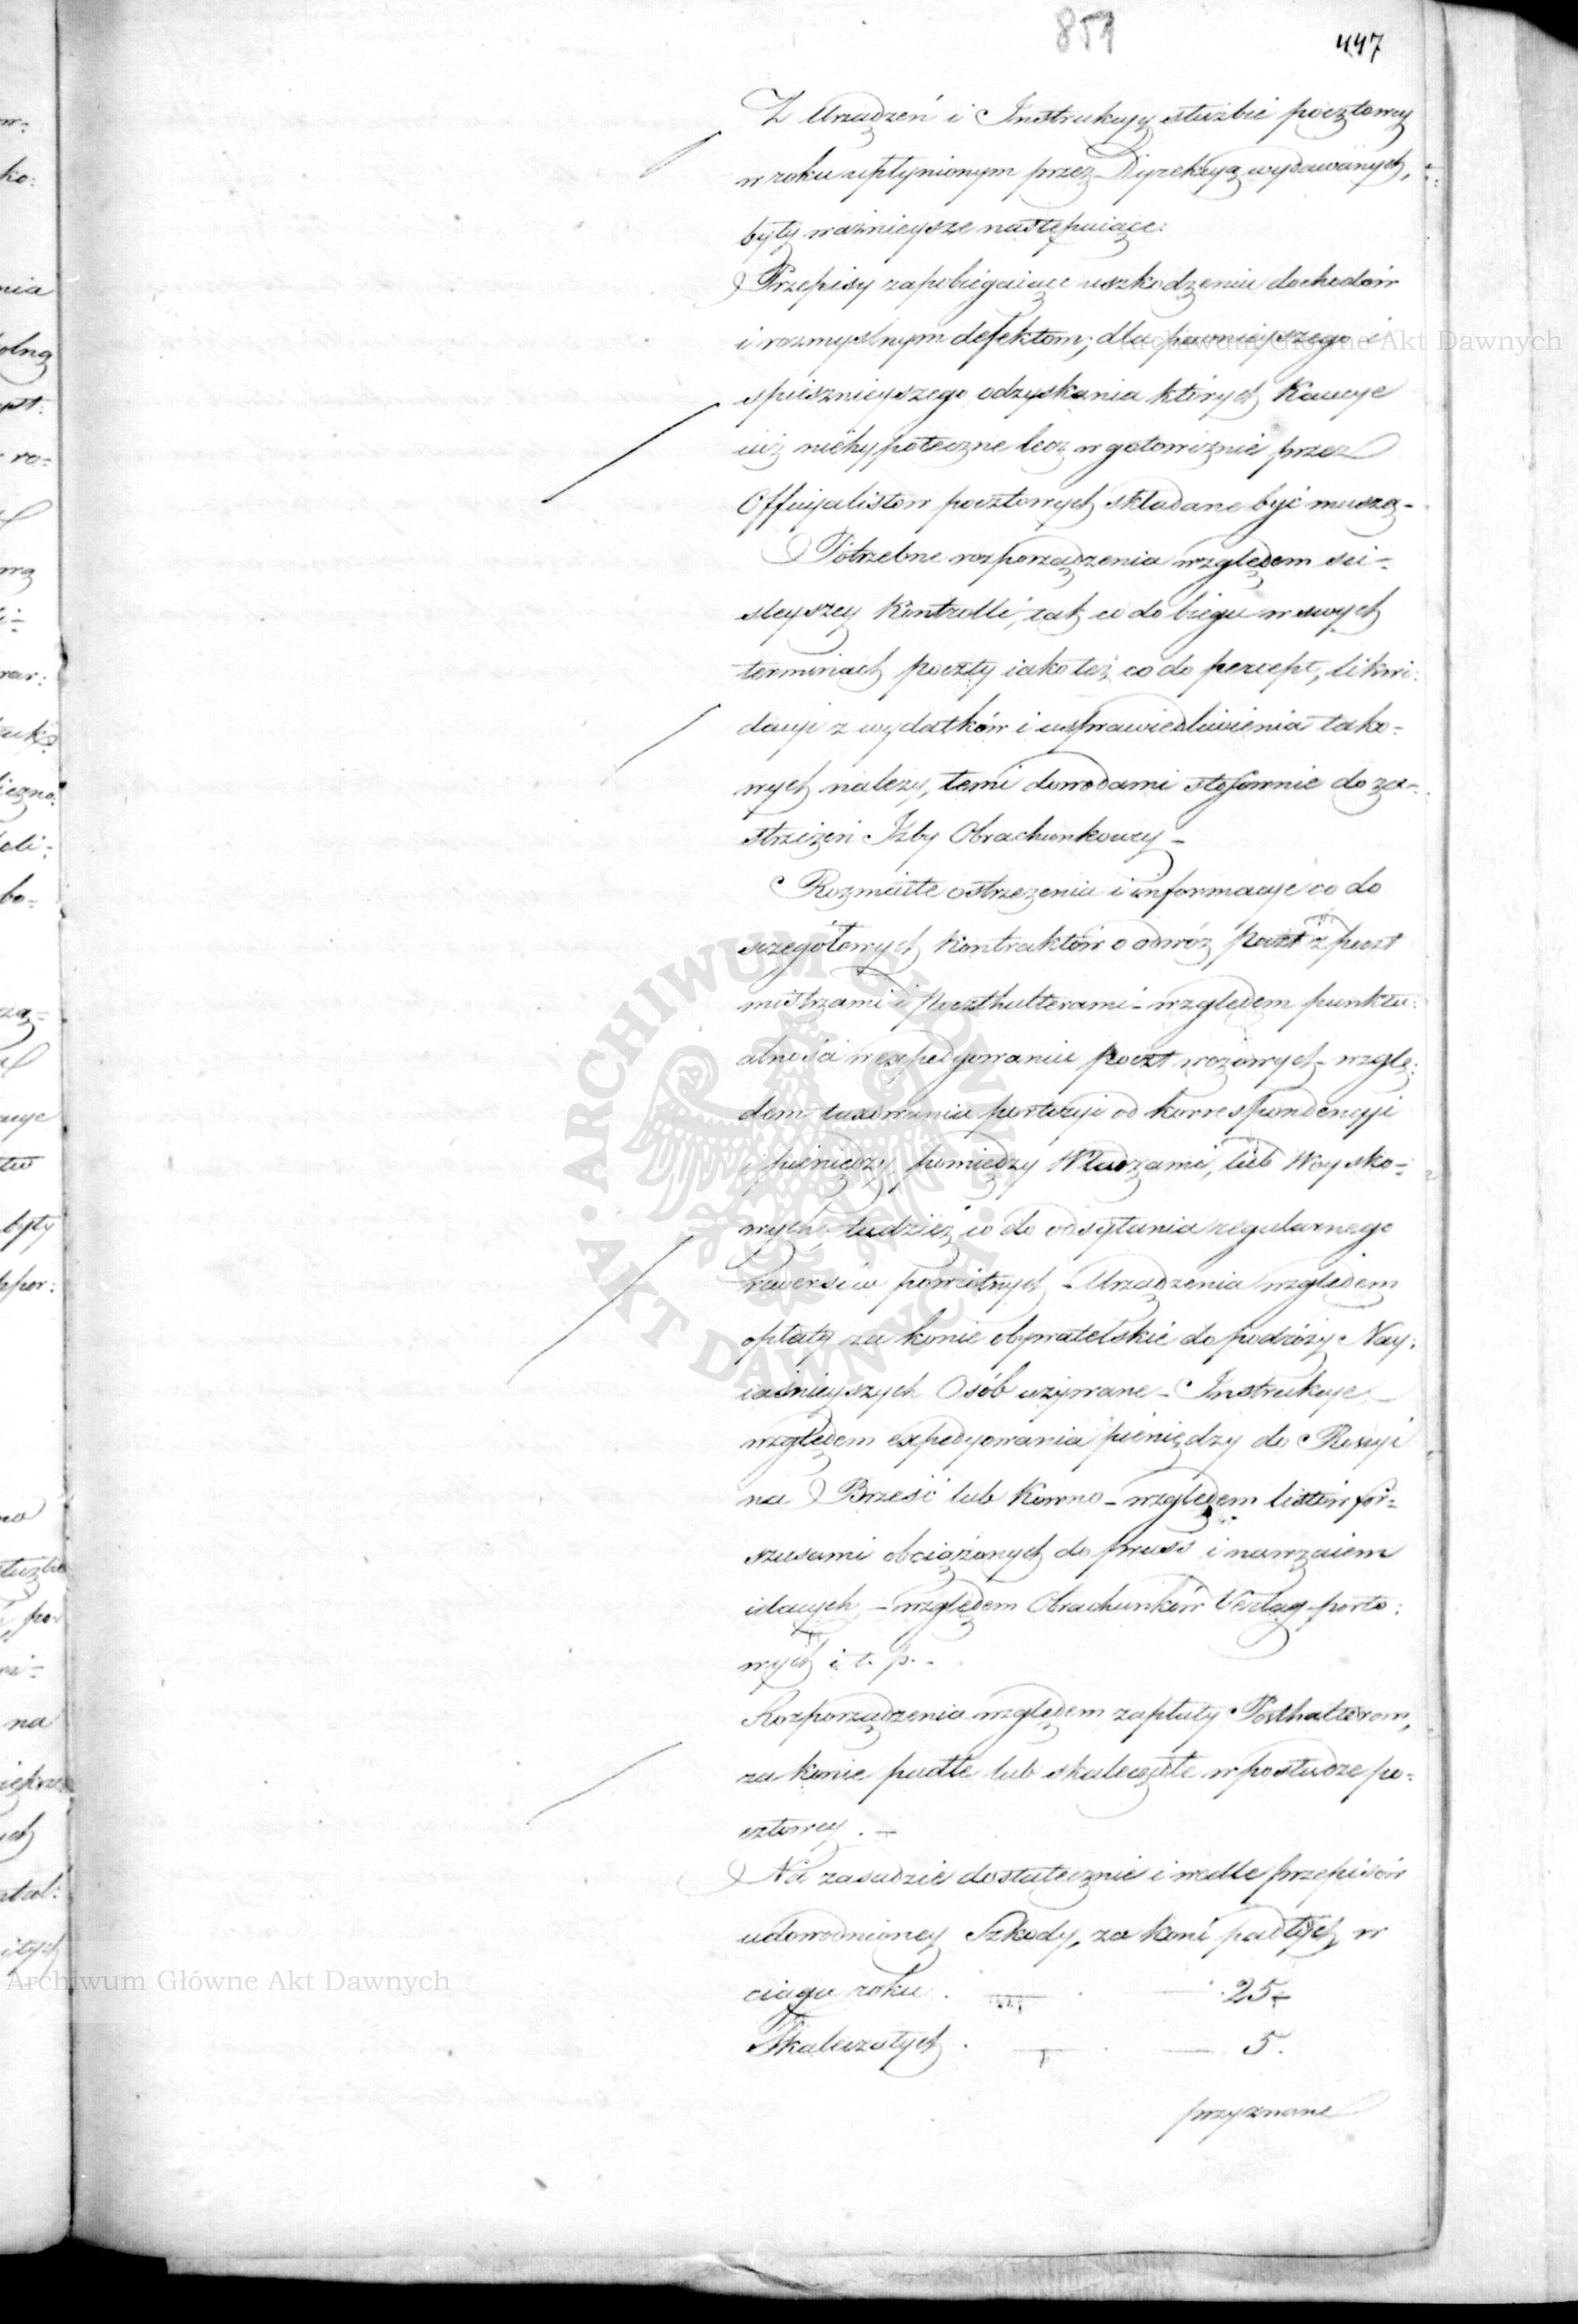 851
447
Z Urządzeń i Instrukcyy służbie pocztowey
w roku upłynionym przez Dyrekcyą wydawanych,
były ważnieysze następuiące:
Przepisy zapobiegaiące uszkodzeniu dochodów
i rozmyslnym defektom; dla pewnieyszego i
spiesznieyszego odzyskania których Kaucye
iuż niehypoteczne lecz w gotowiznie przez
Officyalistow pocztowych składane być muszą -
Potrzebne rozporządzenia względem sci-
sleyszey Kontrolli, tak co do biegu w swych
terminach poczty iako też co do percept, likwi:
dacyi z wydatków i usprawiedliwienia tako-
wych należy, temi dowodami stosownie do za-
strzeżeń Izby Obrachunkowey -
Rozmaite ostrzeżenia i informacye co do
szczegółowych Kontraktów o odwóz Poczt z poczt
mistrzami i Poczthalterami - względem punktu:
alności w expedyowaniu Poczt wozowych - wzglę:
dem taxowania portoryi od korrespondencyi
i pieniędzy pomiędzy Władzami, lub Woysko-
wych, tudzież co do odsyłania regularnego
rewersów powrotnych - Urządzenia względem
opłaty za konie obywatelskie do podróży Nay:
iaśnieyszych Osób używane - Instrukcye
względem expedyowania pieniędzy do Rossyi
na Brześć lub Kowno - względem listów for-
szusami obciążonych do Pruss i nawzaiem
idących, - względem Obrachunków Verlag-porto:
wych i. t. p. -
Rozporządzenia względem zapłaty Posthalterom,
za konie padłe lub skaleczałe w posłudze po-
cztowey. -
Na zasadzie dostatecznie i wedle przepisów
udowodnioney Szkody, za koni padłych w
ciągu roku . - . 25 -
Skaleczałych . - 5.
przyznane
Archiwum Główne Akt Dawnych
Archiwum Główne Akt Dawnych
ARCHIWUM GŁÓWNE AKT DAWNYCH